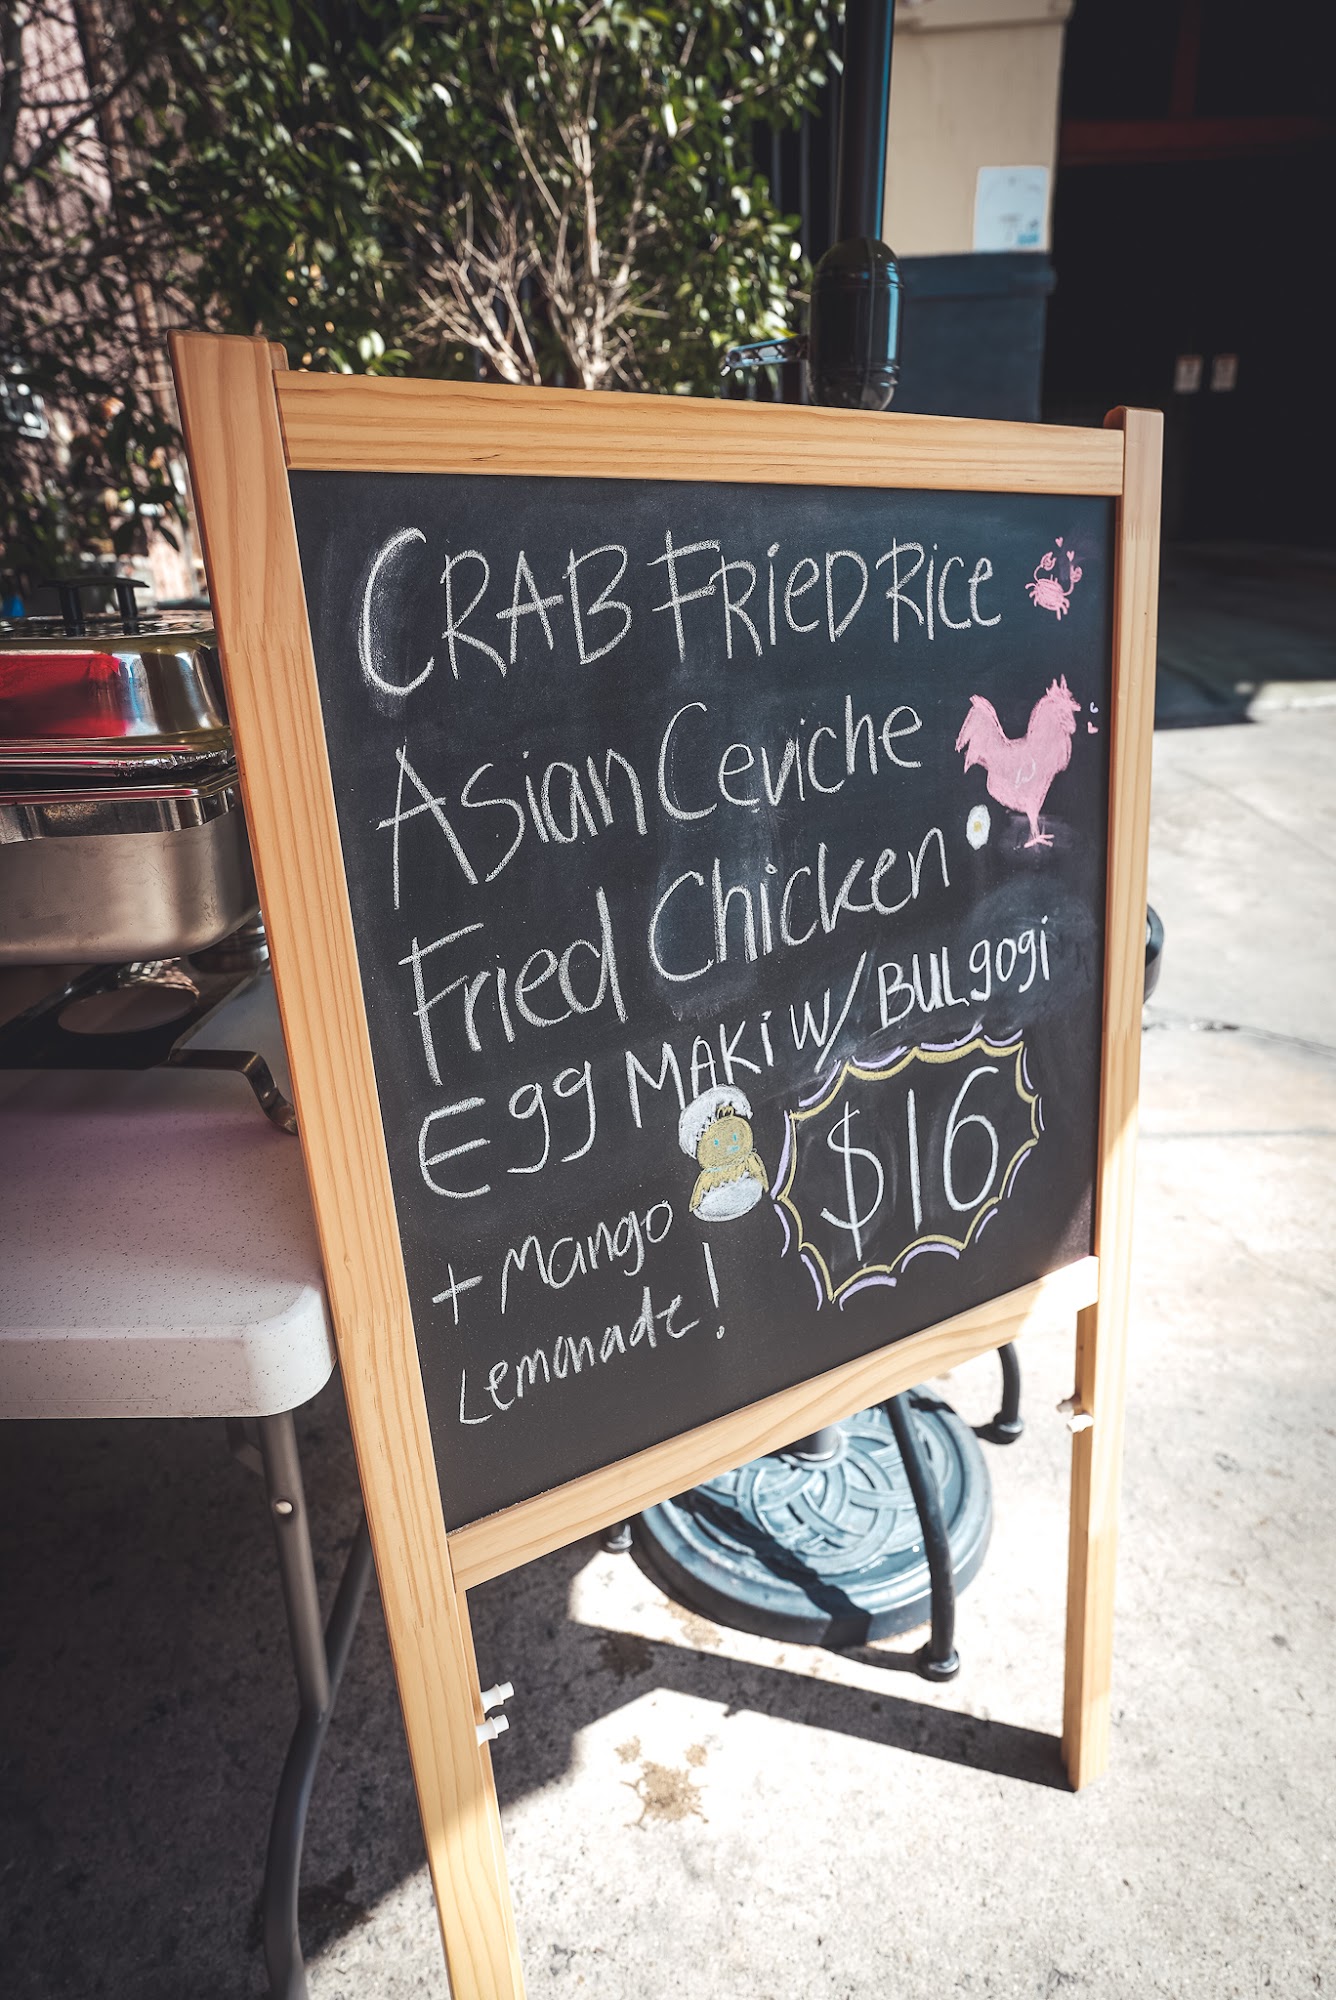 CRAB FRIED RICE
Asian Ceviche
Fried Chicken
Egg MAKi w/ BULgogi
$16
+ Mango
Lemonade!